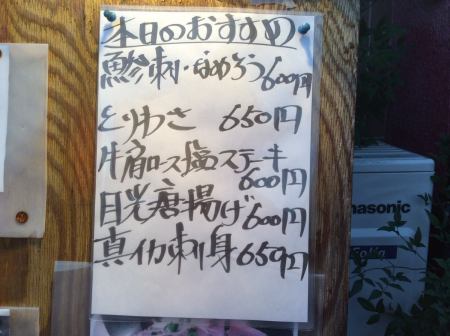 本日のおすすめ
鯵刺・なめろう600円
とりわさ 650円
牛肩ロース塩ステーキ
600円
目光唐揚げ600円
真イカ刺身650円
Panasonic